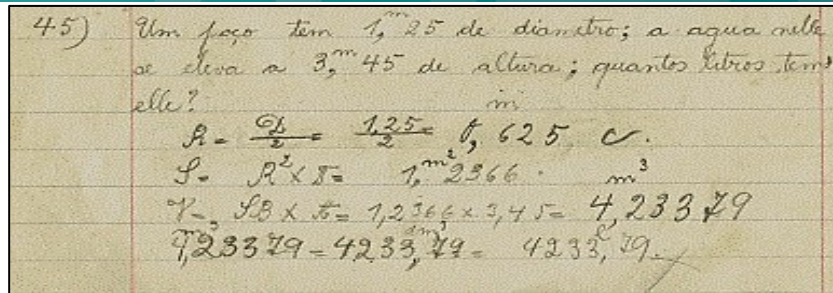 45) Um poço tem 1,ᵐ25 de diametro; a agua nelle
se eleva a 3,ᵐ45 de altura; quantos litros tem
elle?
R = D/2 = 1,25/2 = 0,ᵐ625 c.
S = R² x π = 1,ᵐ²2366.
V = SB x A = 1,2366 x 3,45 = 4,ᵐ³23379
4,ᵐ³23379 = 4233,ᵈᵐ³79 = 4233,ˡ79